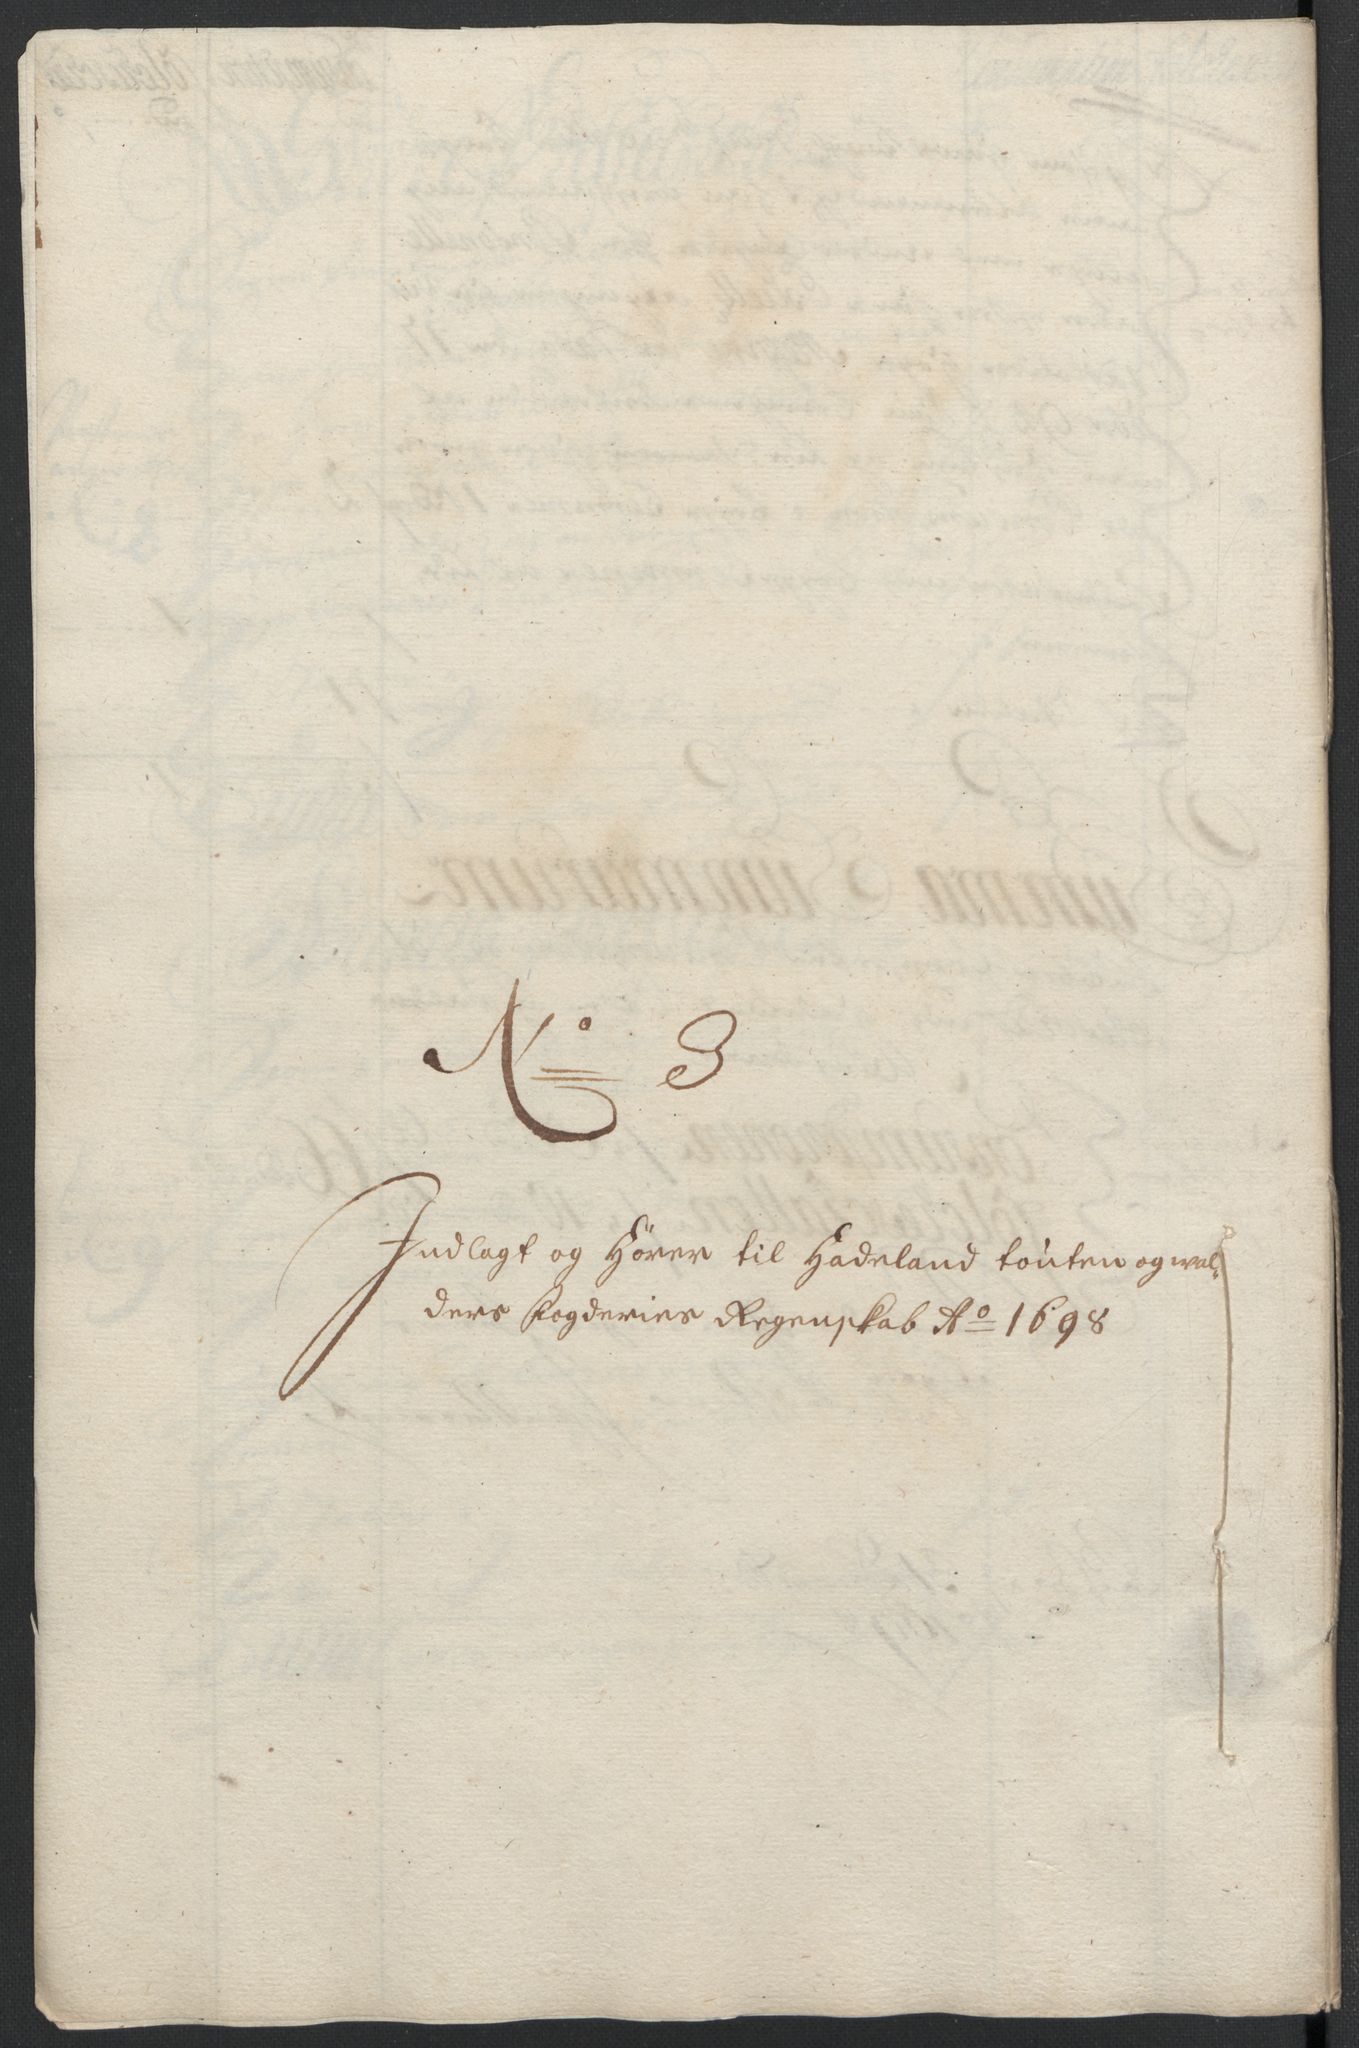 No 3
Indlagt og Hører til Hadeland toŭten og wal-
ders Fogderies Regenskab Ao 1698